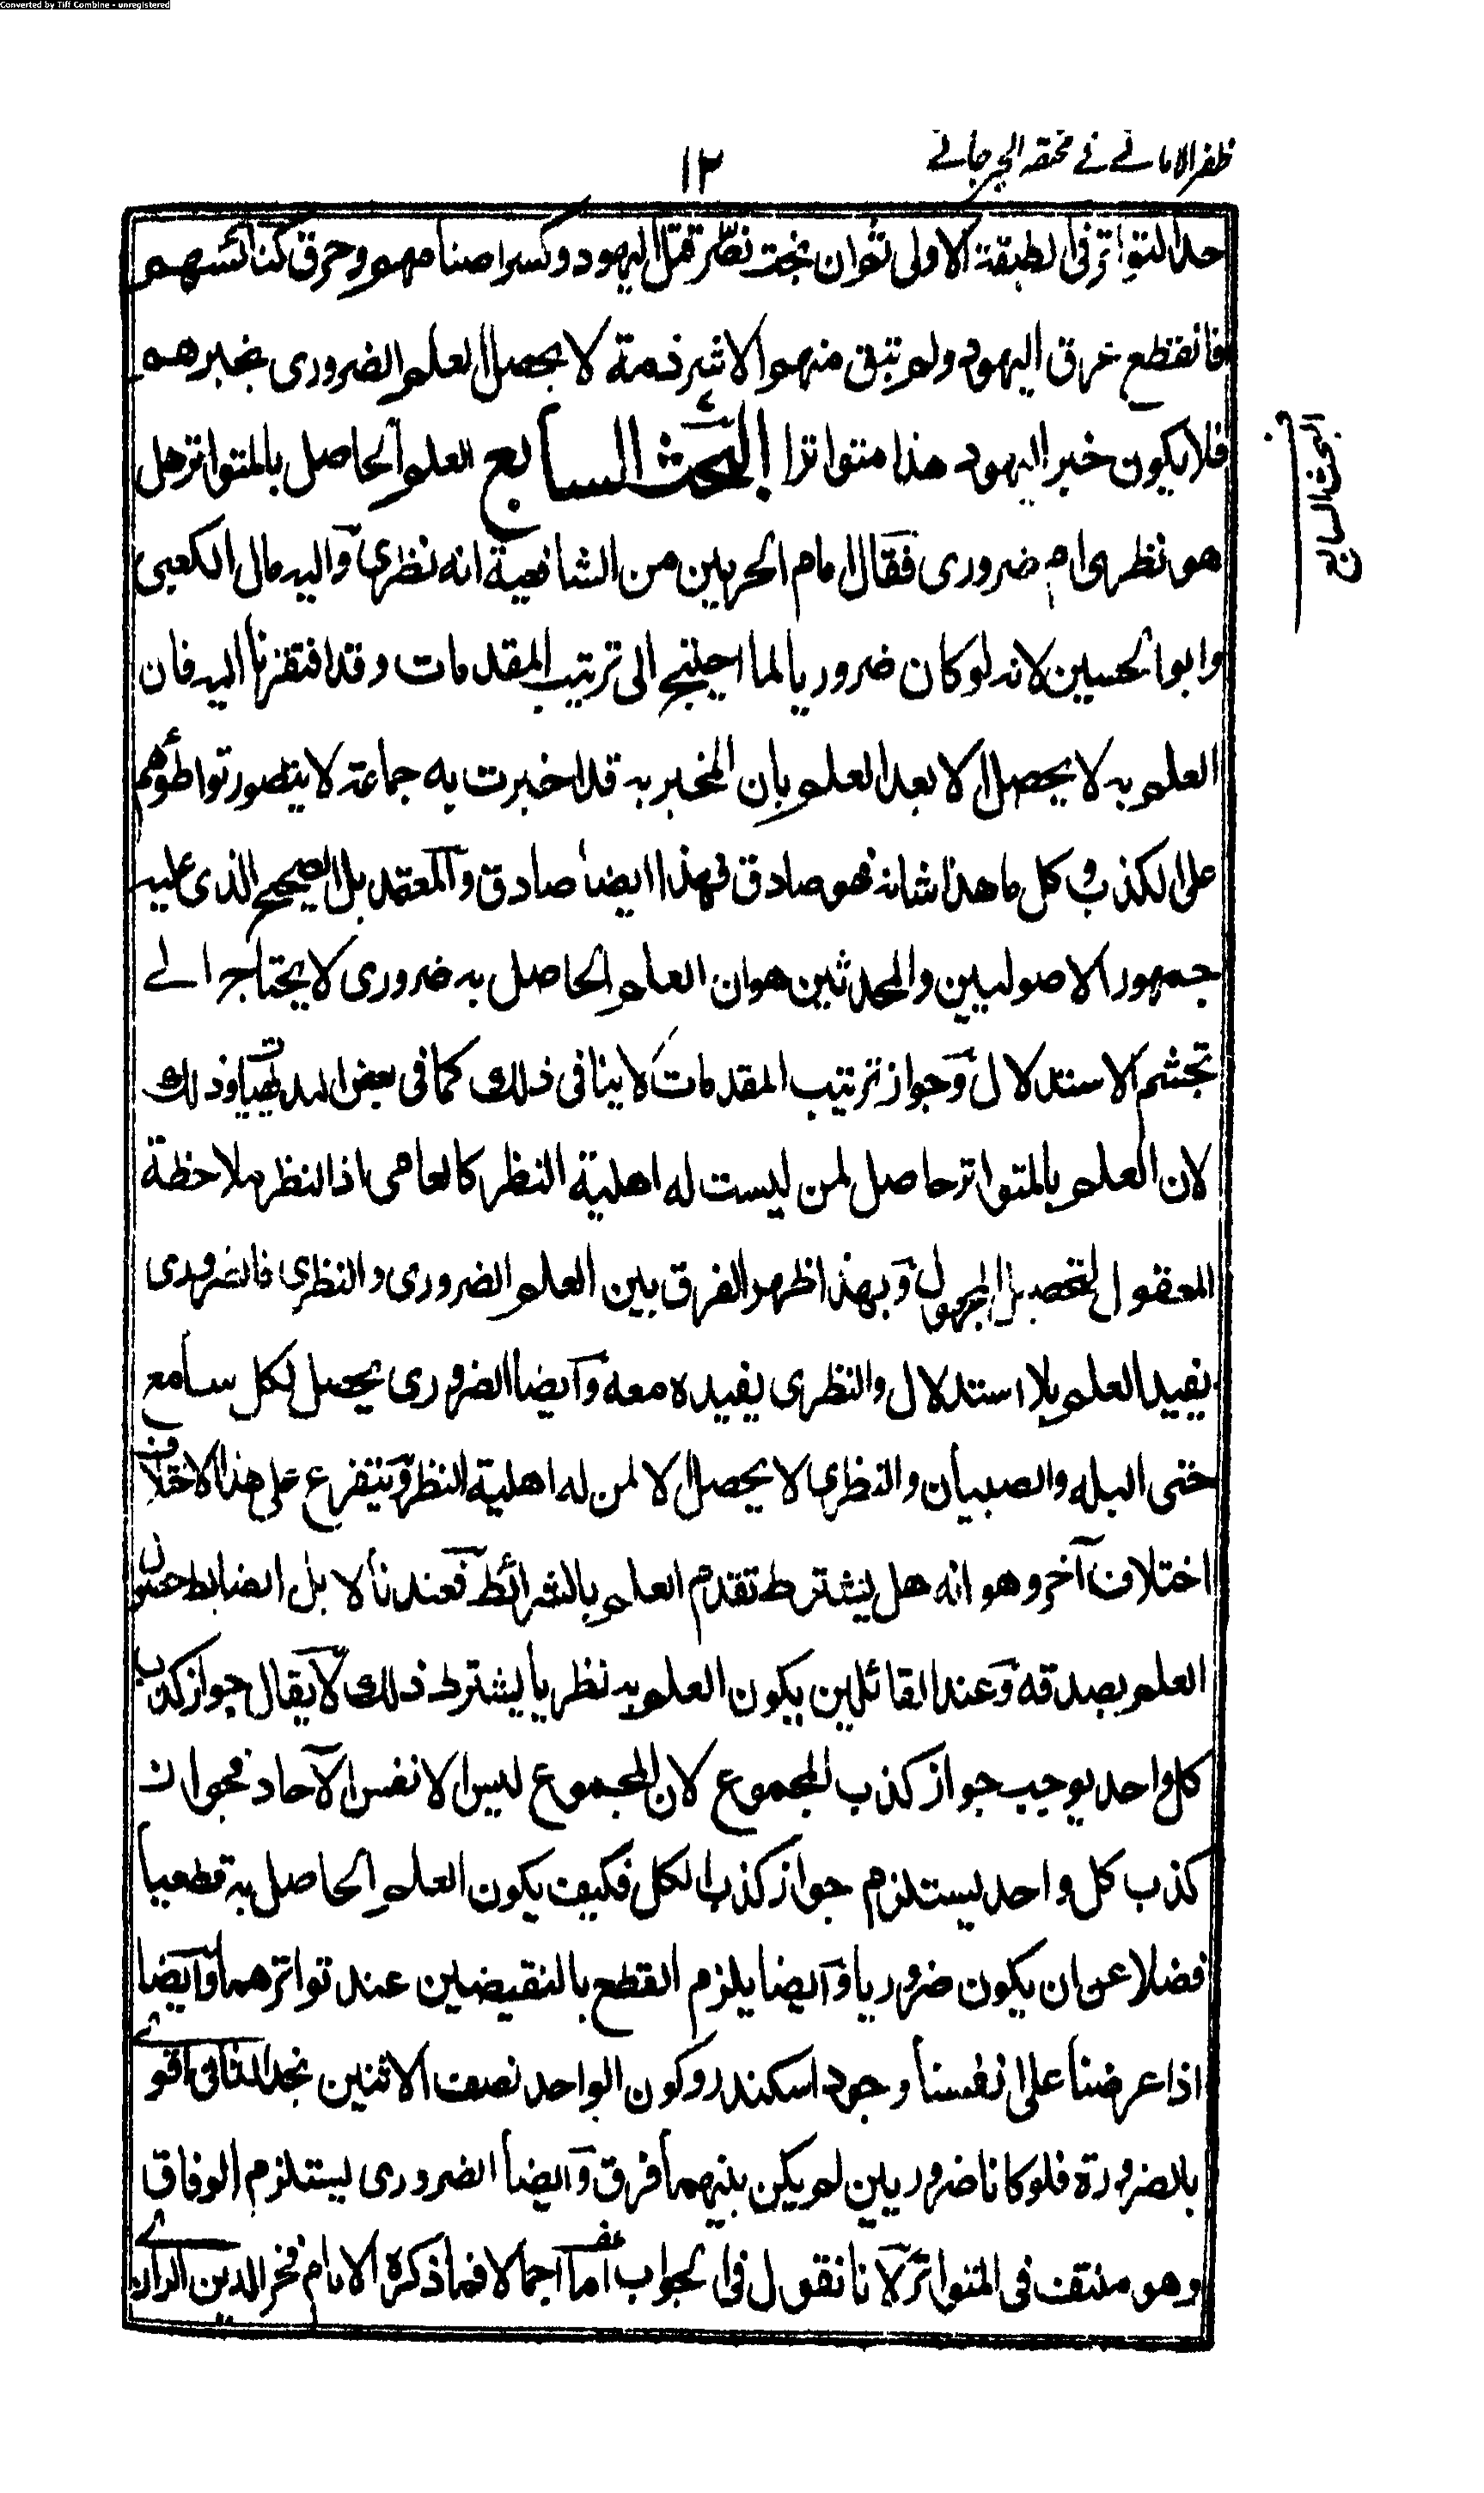 Converted by Tiff Combine - unregistered
ظفر الامانے فے مختصر الجرجانے
١٢
حد التواتر فی الطبقة الاولی ثم ان بخت نصر قتل الیهود وکسر اصنامهم وحرق کنائسهم
فانقطع عرق الیهود ولم تبق منهم الا شرذمة لا یحصل العلم الضروری بخبرهم
فلا یکون خبر الیهود هذا متواترا البحث السابع العلم الحاصل بالمتواتر هل
هو نظری ام ضروری فقال امام الحرمین من الشافعیة انه نظری والیه مال الکعبی
وابو الحسین لانه لو کان ضروریا لما احتیج الی ترتیب المقدمات وقد افتقرنا الیه فان
العلم به لا یحصل الا بعد العلم بان المخبر به قد اخبرت به جماعة لا یتصور تواطؤهم
علی الکذب وکل ما هذا شانه فهو صادق فهذا ایضا صادق والمعتمد بل الصحیح الذی علیه
جمهور الاصولیین والمحدثین هو ان العلم الحاصل به ضروری لا یحتاج الے
تجشم الاستدلال وجواز ترتیب المقدمات لا ینافی ذلك کما فی بعض البدیهیات وذلك
لان العلم بالمتواتر حاصل لمن لیست له اهلیة النظر کالعامی اذ النظر ملاحظة
المعقول لتحصیل المجهول وبهذا ظهر الفرق بین العلم الضروری والنظری فالضروری
یفید العلم بلا استدلال والنظری یفیده معه وایضا الضروری یحصل لکل سامع
حتی البله والصبیان والنظری لا یحصل الا لمن له اهلیة النظر ویتفرع علی هذا الاختلاف
اختلاف آخر وهو انه هل یشترط تقدم العلم بالشرائط فعندنا لا بل الضابط حصول
العلم بصدقه وعند القائلین بکون العلم به نظریا یشترط ذلك لا یقال جواز کذب
کل واحد یوجب جواز کذب المجموع لان المجموع لیس الا نفس الآحاد فجواز
کذب کل واحد یستلزم جواز کذب الکل فکیف یکون العلم الحاصل به قطعیا
فضلا عن ان یکون ضروریا وایضا یلزم القطع بالنقیضین عند تواترهما وایضا
اذا عرضنا علی انفسنا وجود اسکندر وکون الواحد نصف الاثنین نجد الثانی اقوے
بالضرورة فلو کانا ضروریین لم یکن بینهما فرق وایضا الضروری یستلزم الوفاق
وهو منتف فی المتواتر لانا نقول فی الجواب اما اجمالا فما ذکره الامام فخر الدین الرازے